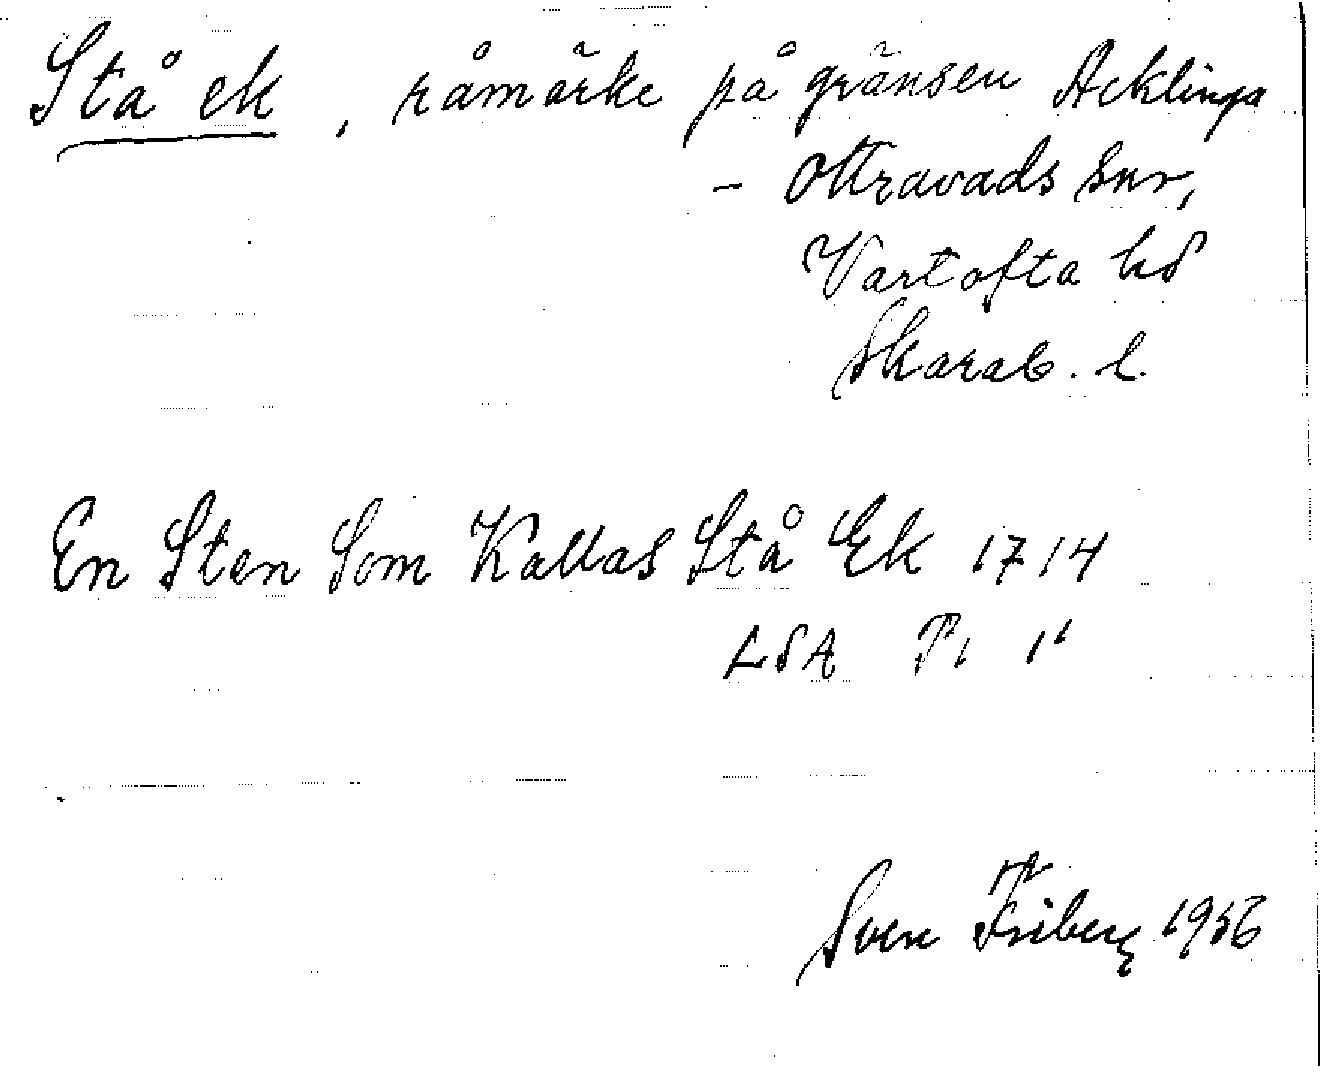 Stå ek, råmärke på gränsen Acklinga
- Ottravads snr,
Vartofta hd
Skarab. l.
En Sten Som Kallas Stå Ek 1714
LSA
Sven Friberg 1956